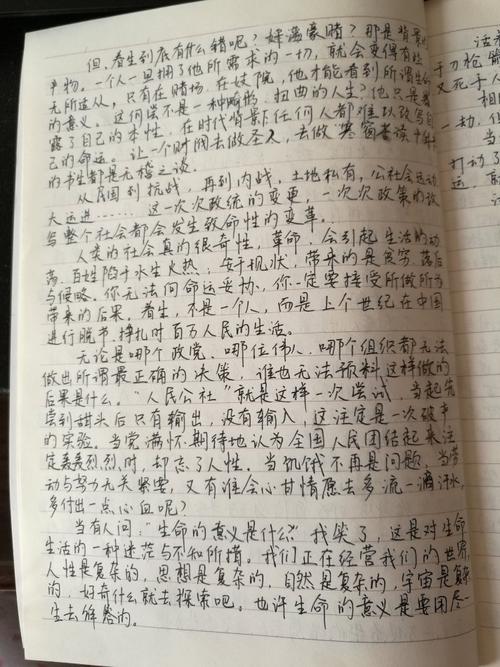 但，看生到底有什么错呢？好淫豪赌？那是背景的
产物。一个人一旦拥了他所需求的一切，就会变得有些
无所适从，只有在赌场，在妓院，他才能看到所谓生命
的意义。这何尝不是一种畸形、扭曲的人生？他只是暴
露了自己的本性，在时代背景下任何人都难以改写自
己的命运。让一个财阀去做圣人，去做寒窗苦读十年
的书生都是无稽之谈。
从民国到抗战，再到内战，土地私有，公社会运动
大运进……这一次次政统的变更，一次次政策的改
写整个社会都会发生致命性的变革。
人类的社会真的很奇性，革命，会引起生活的动
荡，百姓陷于水生火热，安于现状，带来的是贫穷、落后
与侵略。你无法向命运妥协，你一定要接受所做所为
带来的后果。看生，不是一个人，而是上个世纪在中国
进行脱节、挣扎时百万人民的生活。
无论是哪个政党、哪位伟人、哪个组织都无法
做出所谓最正确的决策，谁也无法预料这样做的
后果是什么。“人民公社”就是这样一次尝试，当起先
尝到甜头后只有输出，没有输入，这注定是一次破产
的实验。当党满怀期待地认为全国人民团结起来注
定轰轰烈烈时，却忘了人性。当饥饿不再是问题，当劳
动与努力无关紧要，又有谁会心甘情愿去多流一滴汗水，
多付出一点心血呢？
当有人问：“生命的意义是什么”我笑了，这是对生命
生活的一种迷茫与不知所措。我们正在经营我们的世界，
人性是复杂的，思想是复杂的，自然是复杂的，宇宙是复杂
的，好奇什么就去探索吧。也许生命的意义是要用尽一
生去解答的。
活着
于刀枪
又死于人
相
一劫，但
当
打动了
运，